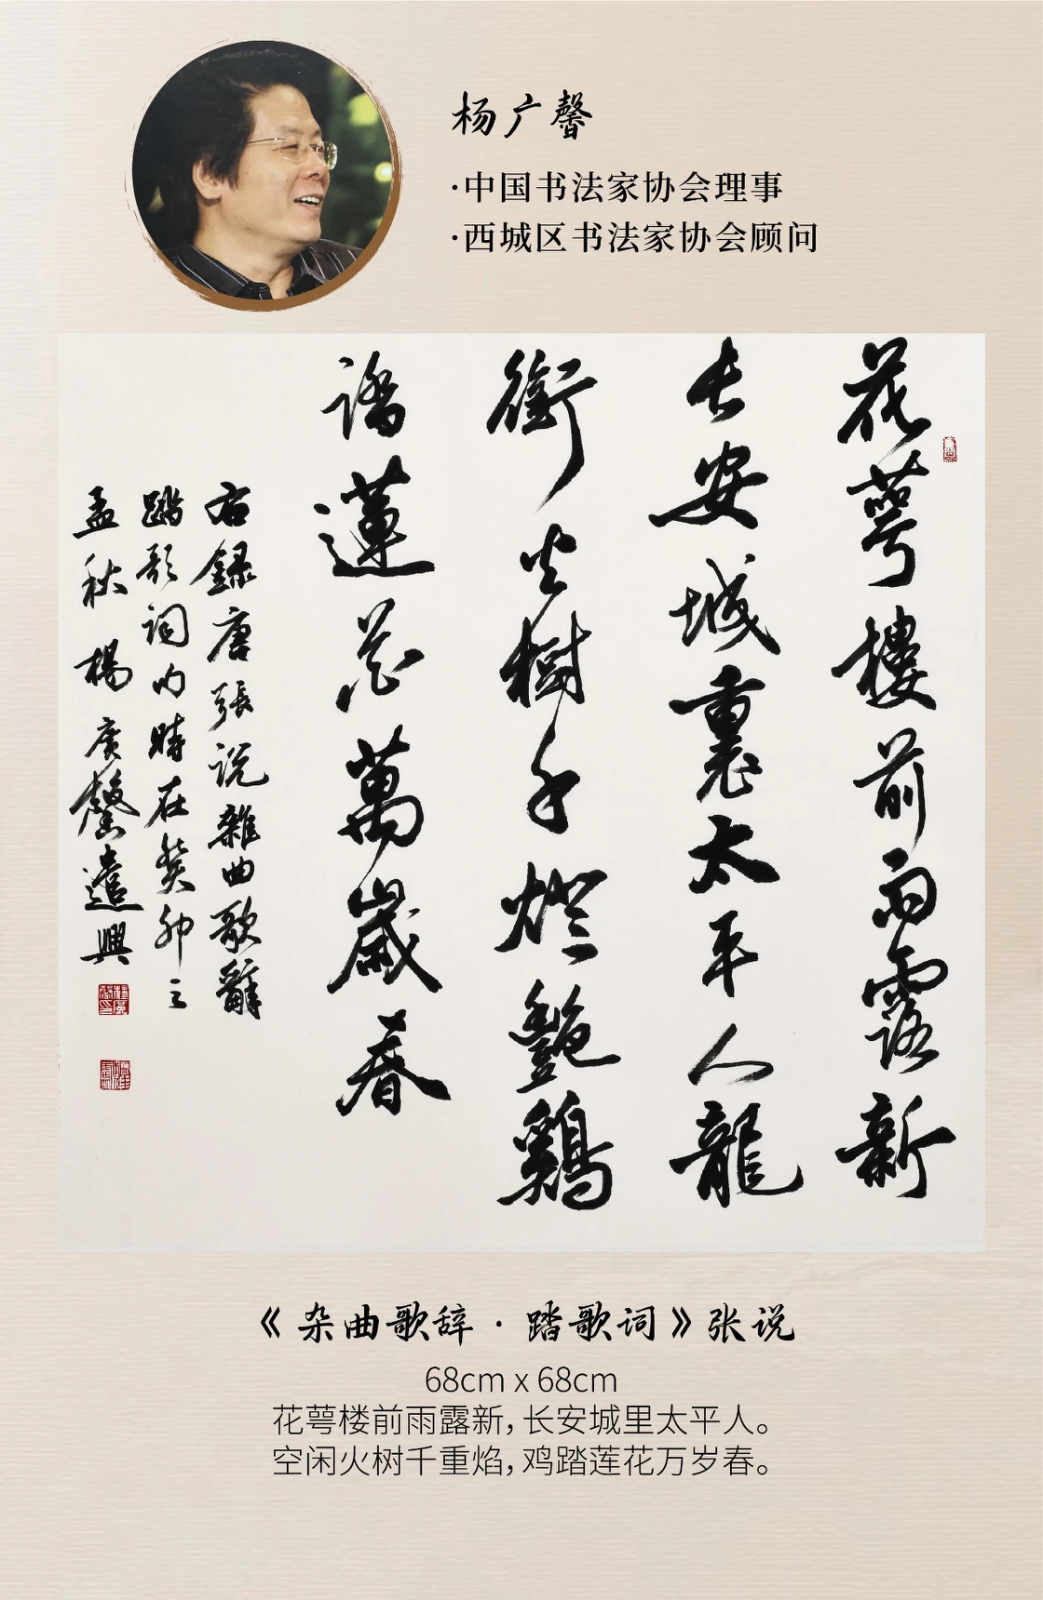 杨广馨
·中国书法家协会理事
·西城区书法家协会顾问
花萼樓前雨露新
长安城裏太平人龍
銜火樹千燈艷鷄
踏蓮花萬歲春
右録唐張说雜曲歌辭
踏歌词内時在癸卯之
孟秋楊广馨遣興
《杂曲歌辞·踏歌词》张说
68cm x 68cm
花萼楼前雨露新，长安城里太平人。
空闲火树千重焰，鸡踏莲花万岁春。